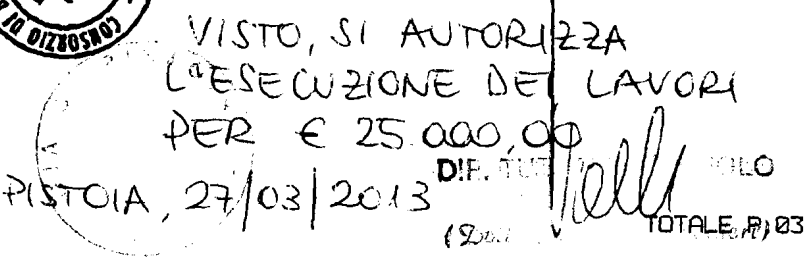 CONSORZIO DI
VISTO, SI AUTORIZZA
L'ESECUZIONE DEI LAVORI
PER € 25.000,00
DIR.
PISTOIA, 27/03/2013
TOTALE P.03